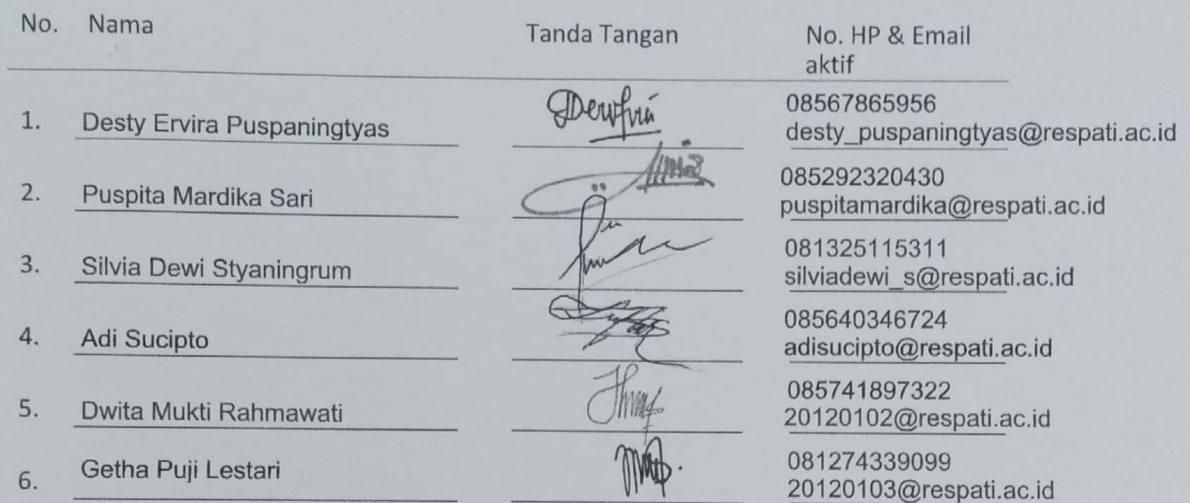 No. Nama Tanda Tangan No. HP & Email
aktif
1. Desty Ervira Puspaningtyas 08567865956
desty_puspaningtyas@respati.ac.id
2. Puspita Mardika Sari 085292320430
puspitamardika@respati.ac.id
3. Silvia Dewi Styaningrum 081325115311
silviadewi_s@respati.ac.id
4. Adi Sucipto 085640346724
adisucipto@respati.ac.id
5. Dwita Mukti Rahmawati 085741897322
20120102@respati.ac.id
6. Getha Puji Lestari 081274339099
20120103@respati.ac.id